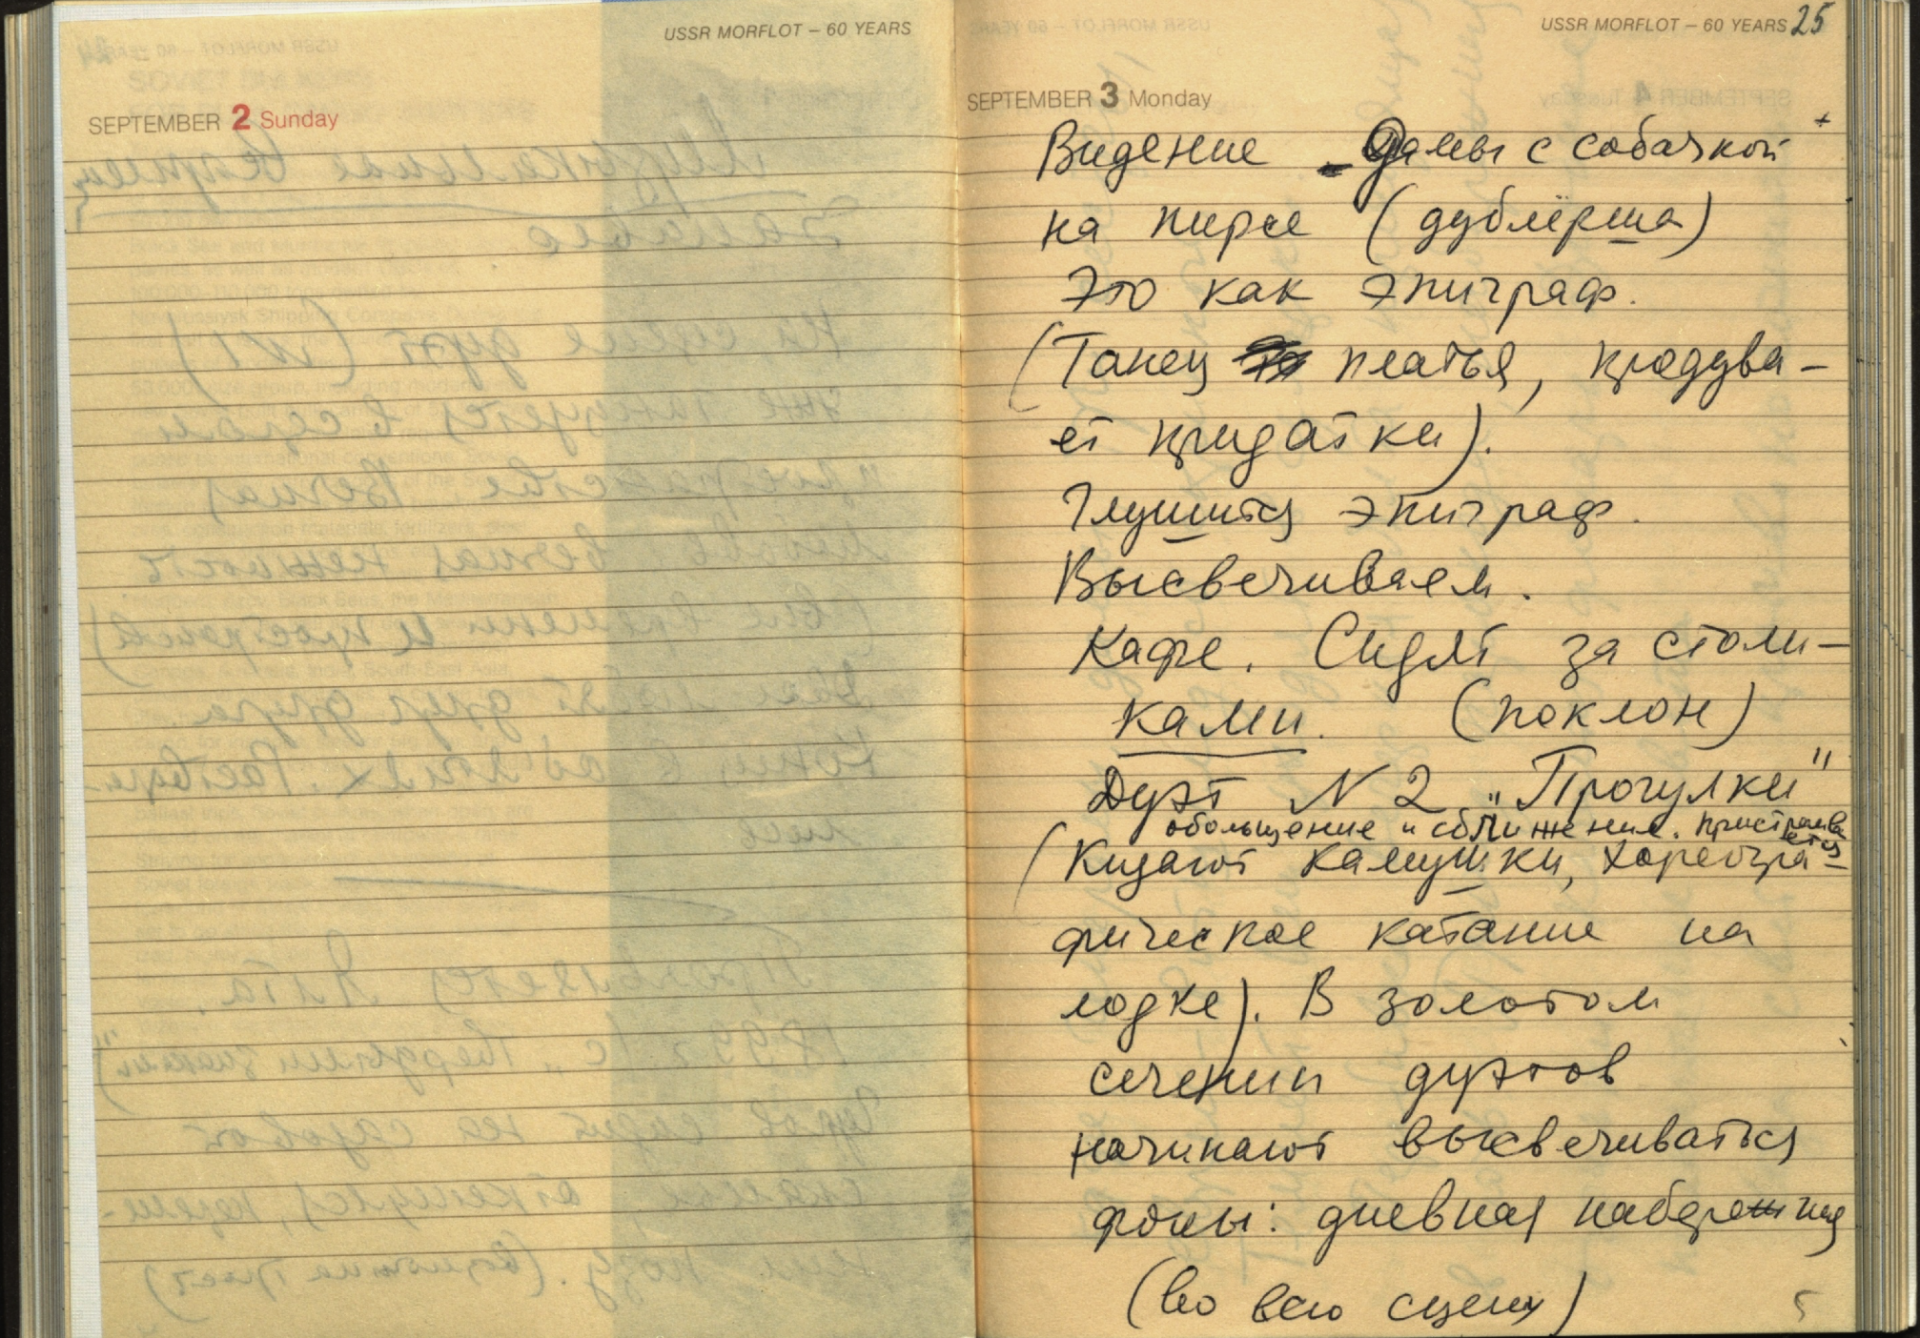 USSR MORFLOT – 60 YEARS
SEPTEMBER 2 Sunday
USSR MORFLOT – 60 YEARS 25
SEPTEMBER 3 Monday
Видение Дамы с собачкой +
на пирсе (дублёрша)
Это как эпиграф.
(Танец платья, продува–
ет придатки).
Глушится эпиграф.
Высвечиваем.
Кафе. Сидят за столи–
ками. (поклон)
Дуэт N 2 „Прогулки"
обольщение и сближение. пристраивается
(Кидают камушки, хореогра–
фическое катание на
лодке). В золотом
сечении дуэтов
начинают высвечиваться
фоны: дневная набережная
(во всю сцену)
5